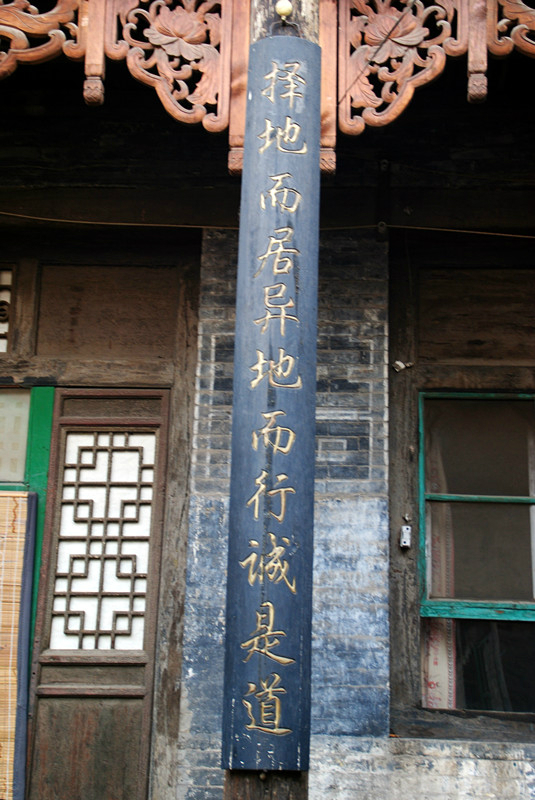 择地而居异地而行诚是道